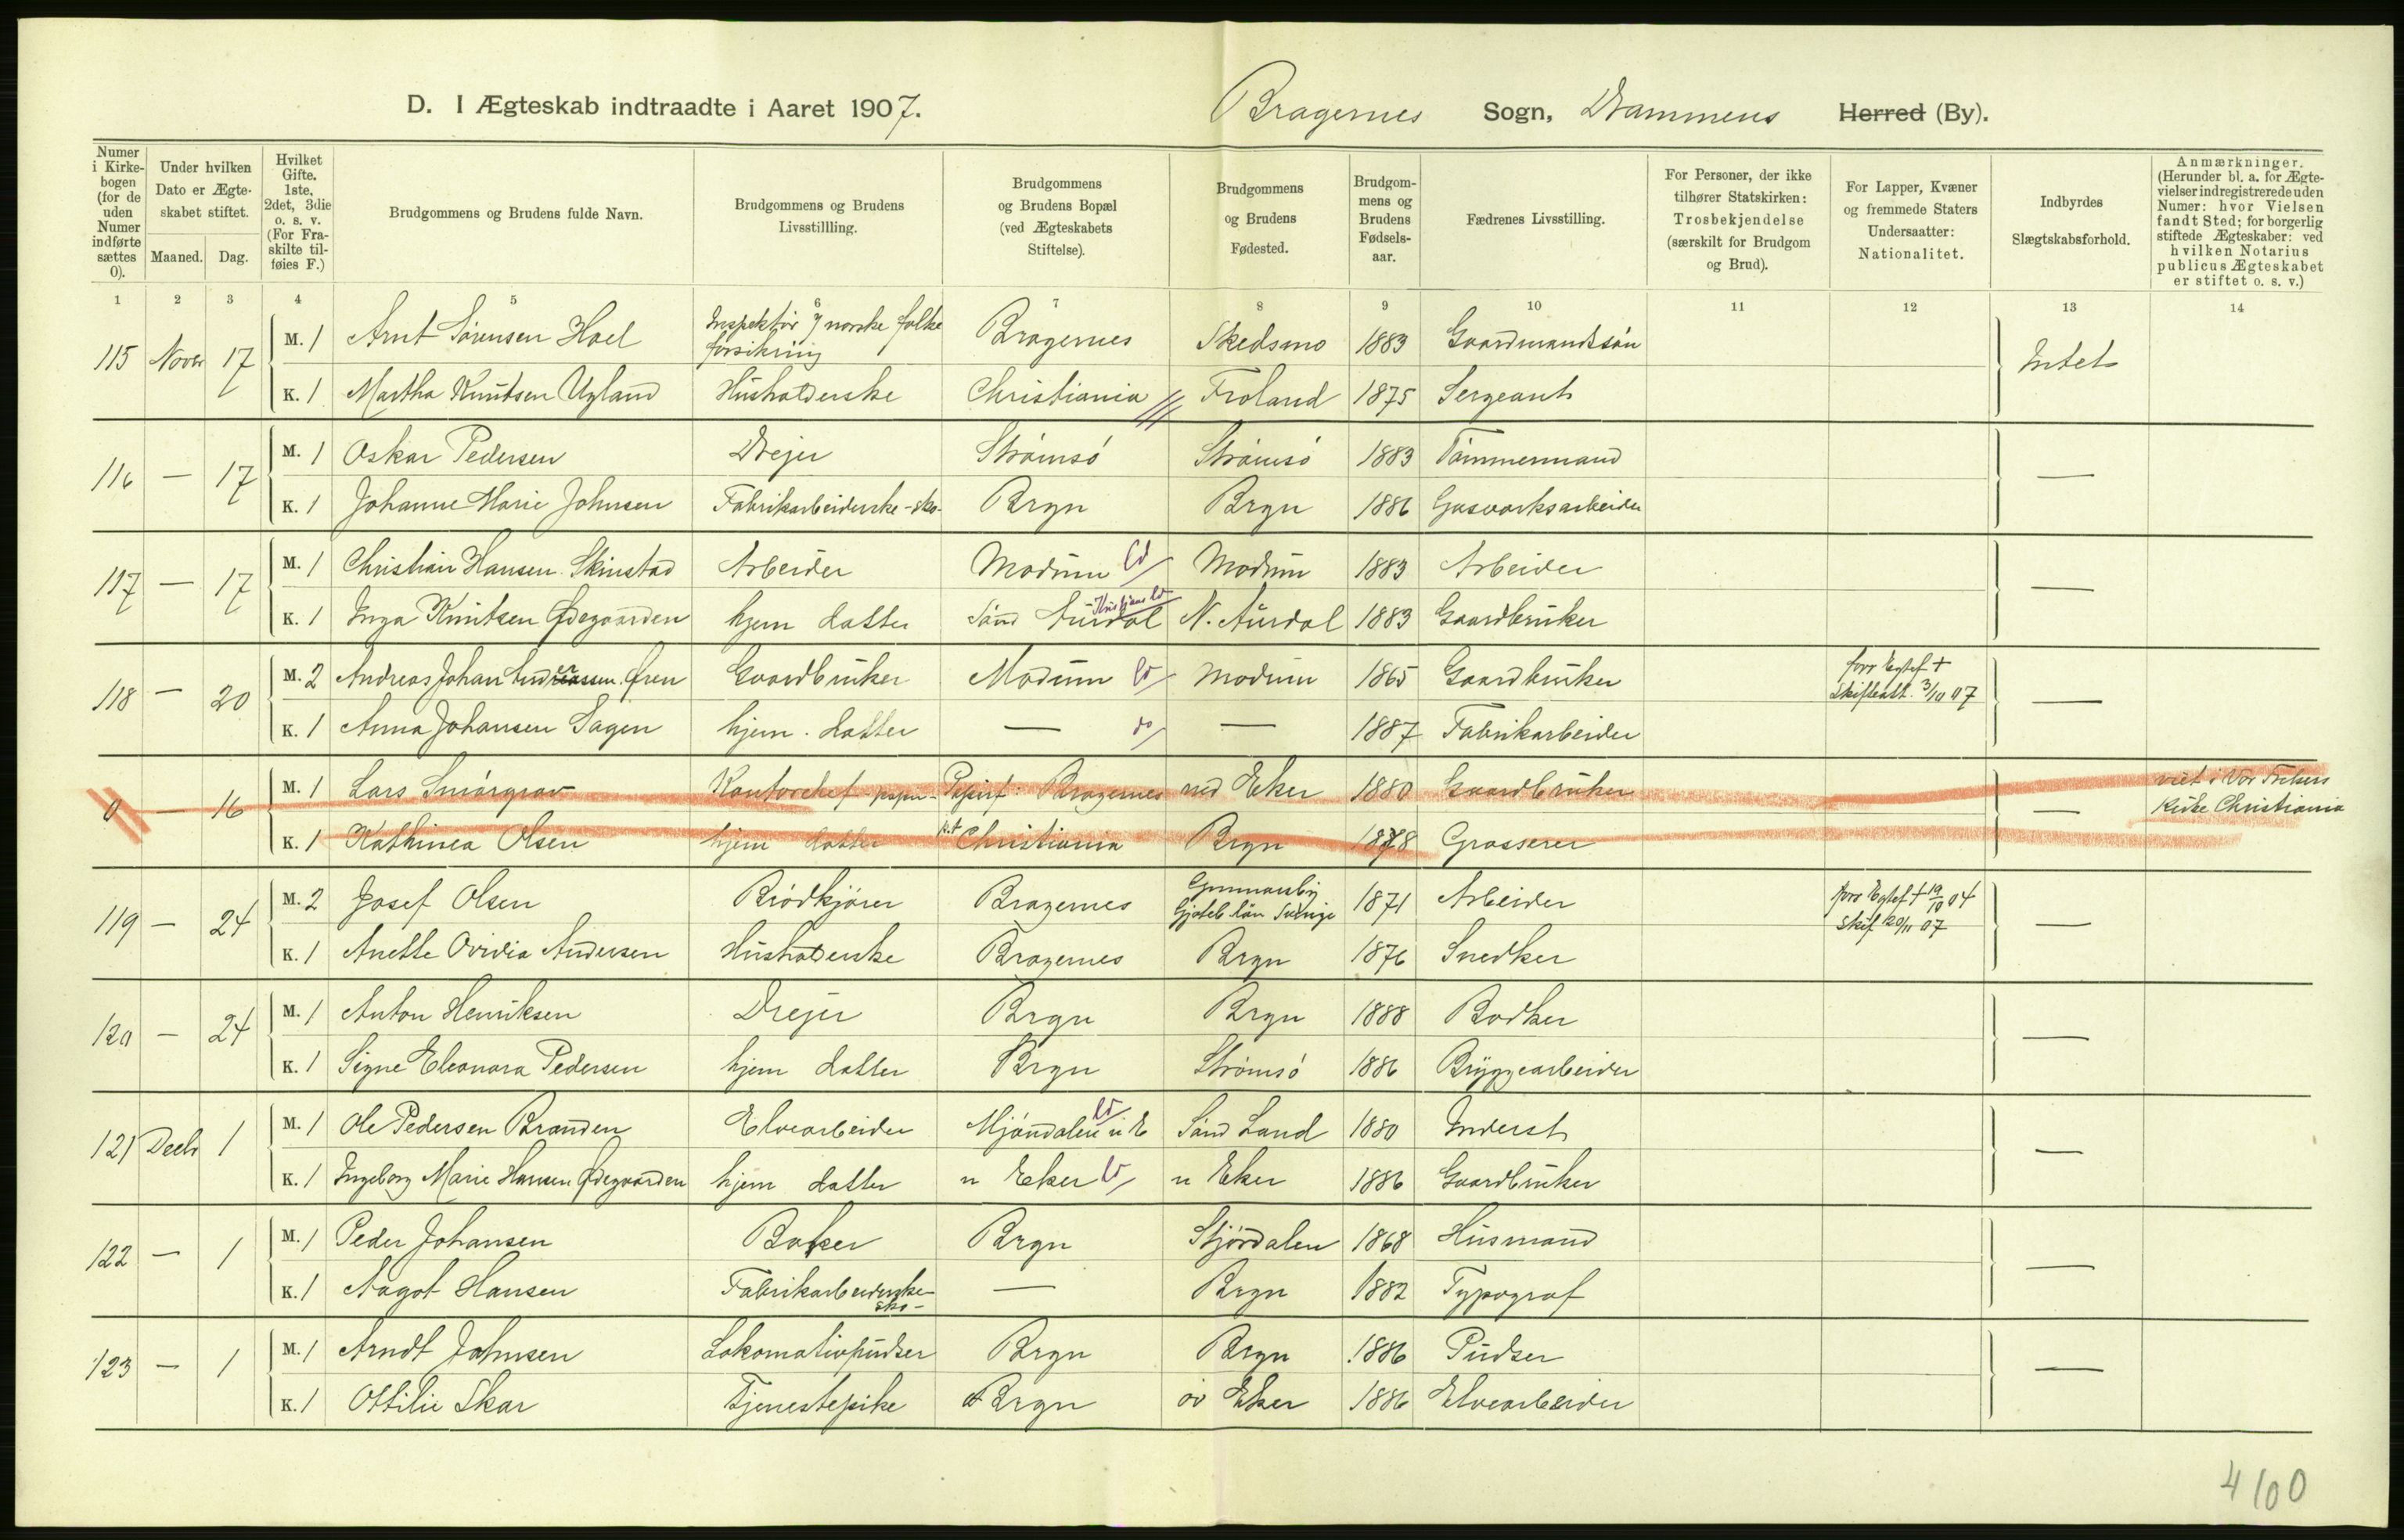 D. I Ægteskab indtraadte i Aaret 1907. Bragernes Sogn, Drammens Herred (By).
Numer i Kirkebogen (for de uden Numer indførte sættes 0).
Under hvilken Dato er Ægteskabet stiftet.
Maaned. Dag.
Hvilket Gifte. 1ste, 2det, 3die o. s. v. (For Fraskilte tilføies F.)
Brudgommens og Brudens fulde Navn.
Brudgommens og Brudens Livsstillling.
Brudgommens og Brudens Bopæl (ved Ægteskabets Stiftelse).
Brudgommens og Brudens Fødested.
Brudgommens og Brudens Fødselsaar.
Fædrenes Livsstilling.
For Personer, der ikke tilhører Statskirken: Trosbekjendelse (særskilt for Brudgom og Brud).
For Lapper, Kvæner og fremmede Staters Undersaatter: Nationalitet.
Indbyrdes Slægtskabsforhold.
Anmærkninger. (Herunder bl. a. for Ægtevielser indregistrerede uden Numer: hvor Vielsen fandt Sted; for borgerlig stiftede Ægteskaber: ved hvilken Notarius publicus Ægteskabet er stiftet o. s. v.)
1 2 3 4 5 6 7 8 9 10 11 12 13 14
115 Novbr 17 M. 1 Arnt Sörensen Hoel Inspektör i norske folke forsikring Bragernes Skedsmo 1883 Gaardmandssön Intet
K. 1 Martha Knutsen Ugland Husholderske Christiania Froland 1875 Sergeant
116 — 17 M. 1 Oskar Pedersen Drejer Strömsö Strömsö 1883 Tömmermand —
K. 1 Johanne Marie Johnsen Fabrikarbeiderske -sko- Brgn Brgn 1886 Gasværksarbeider
117 — 17 M. 1 Christian Hansen Skinstad Arbeider Modum Modum 1883 Arbeider —
K. 1 Inga Knutsen Ødegaarden hjem datter Sönd Aurdal N. Aurdal 1883 Gaardbruker
118 — 20 M. 2 Andreas Johan Andreassen Øren Gaardbruker Modum Modum 1865 Gaardbruker forr Egtef + Skifteatt. 3/10 07 —
K. 1 Anna Johansen Hagen hjem. datter — — 1887 Fabrikarbeider
0 — 16 M. 1 Lars Smörgrav Kontorchef papir- Papirf. Bragernes ned Eker 1880 Gaardbruker — viet i Vor Frelsers Kirke Christiania
K. 1 Kathinca Olsen hjem datter p.t Christiania Brgn 1878 Grosserer
119 — 24 M. 2 Josef Olsen Brödkjörer Bragernes Gunnarsby län Sverige 1871 Arbeider forr Egtef + 19/10 04 Skif 20/11 07 —
K. 1 Anette Ovidia Andersen Husholderske Bragernes Brgn 1876 Snedker
120 — 24 M. 1 Anton Henriksen Drejer Brgn Brgn 1888 Bödker —
K. 1 Signe Eleonora Pedersen hjem datter Brgn Strömsö 1886 Bryggearbeider
121 Decbr 1 M. 1 Ole Pedersen Branden Elvearbeider Mjöndalen n E Sönd Land 1880 Inderst —
K. 1 Ingeborg Marie Hansen Ødegaarden hjem datter n Eker n Eker 1886 Gaardbruker
122 — 1 M. 1 Peder Johansen Baker Brgn Stjördalen 1868 Husmand —
K. 1 Aagot Hansen Fabrikarbeiderske- sko- — Brgn 1882 Typograf
123 — 1 M. 1 Arndt Johnsen Lokomotivpudser Brgn Brgn 1886 Pudser —
K. 1 Ottilie Skar Tjenestepike Brgn öv Eker 1886 Elvearbeider
4100